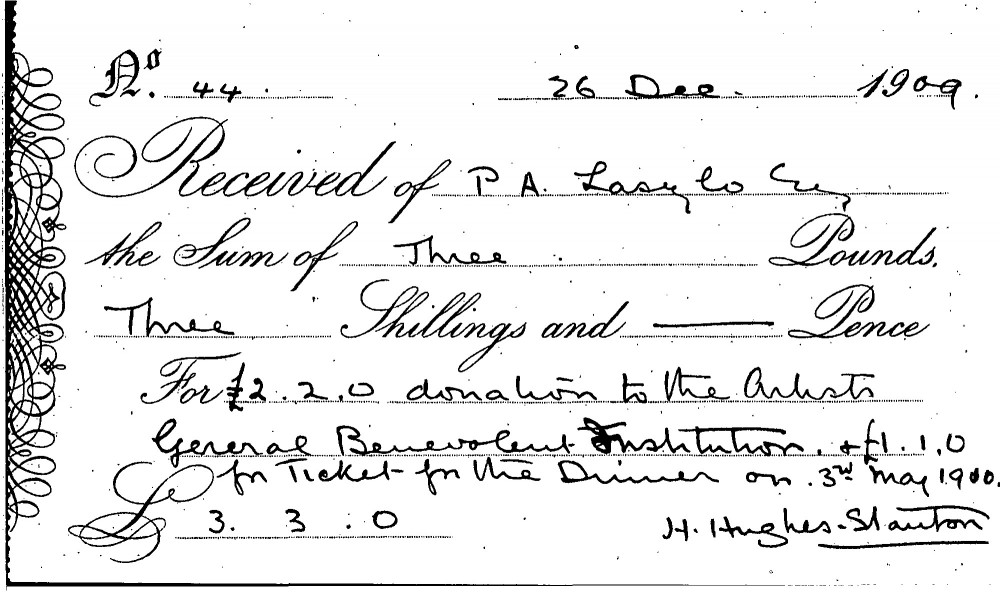 No. 44. 26 Dec. 1909.
Received of P A. Laszlo Esq
the Sum of Three Pounds.
Three Shillings and — Pence
For £2.2.0 donation to the Artists
General Benevolent Institution. + £1.1.0
for Ticket for the Dinner on 3rd May 1910.
£ 3. 3. 0
H. Hughes-Stanton